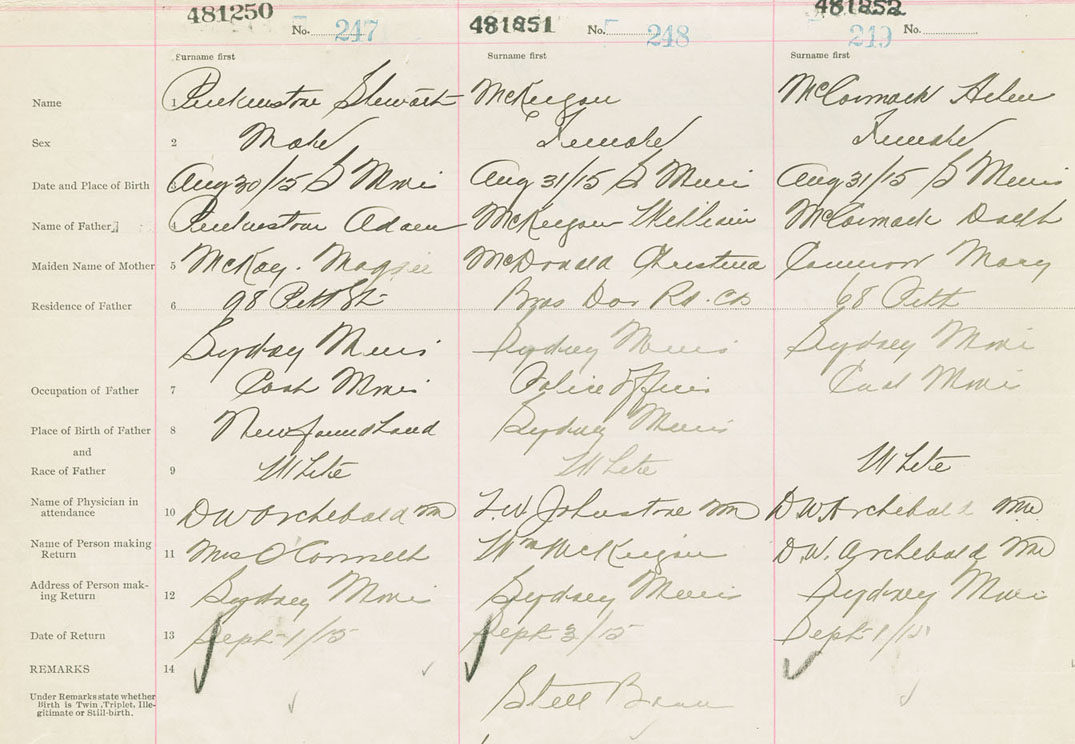 481250 481851 481852
No. 247 No. 248 249 No.
Surname first Surname first Surname first
Name 1 Stewart McKeigan McCormack Helen
Sex 2 Male Female Female
Date and Place of Birth 3 Aug 30/15 S Mines Aug 31/15 S Mines Aug 31/15 S Mines
Name of Father 4 Adam McKeigan William McCormack
Maiden Name of Mother 5 McKay. Maggie McDonald Christina Cameron Mary
Residence of Father 6 98 Pitt St Bras Dor Rd. 68 Pitt
Sydney Mines Sydney Mines Sydney Mines
Occupation of Father 7 Coal Miner Police Officer Coal Miner
Place of Birth of Father 8 Newfoundland Sydney Mines
and
Race of Father 9 White White White
Name of Physician in
attendance 10 D W Archibald MD Johnstone MD D W Archibald MD
Name of Person making
Return 11 Mrs O'Connell Wm McKeigan D. W. Archibald MD
Address of Person mak-
ing Return 12 Sydney Mines Sydney Mines Sydney Mines
Date of Return 13 Sept 1/15 Sept 3/15 Sept 1/15
REMARKS 14
Under Remarks state whether
Birth is Twin, Triplet, Ille-
gitimate or Still-birth.
Still Born